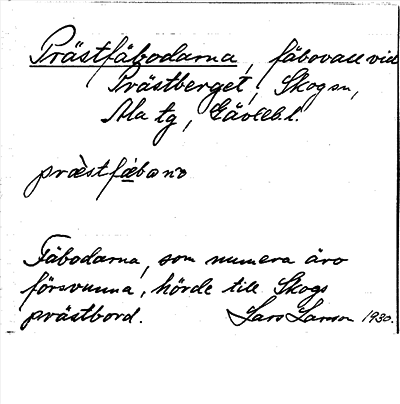 Prästfäbodarna, fäbovall vid
Prästberget, Skog sn,
Ala tg, Gävlebl.
præ̀stfæ̀bonɒ
Fäbodarna, som numera äro
försvunna, hörde till Skogs
prästbord. Lars Larson 1930.